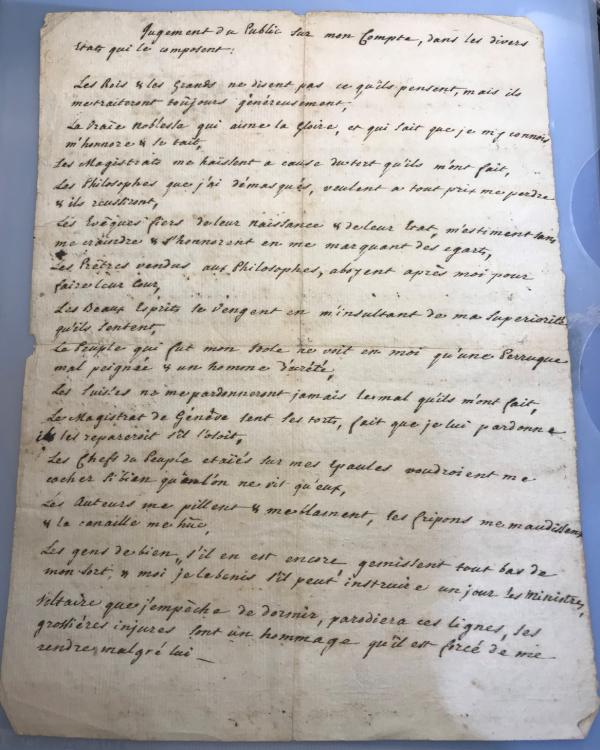 Jugement du Public sur mon Compte, dans les divers
Etats qui le composent:
Les Rois & les Grands ne disent pas ce qu'ils pensent, mais ils
me traiteront toûjours généreusement,
La Vraïe noblesse qui aime la Gloire, et qui sait que je m'y connois
m'honnore & se tait,
Les Magistrats me haïssent a cause du tort qu'ils m'ont fait,
Les Philosophes que j'ai démasqués, veulent a tout prix me perdre
& ils réussiront,
Les Evêques fiers de leur naissance & de leur Etat, m'estiment sans
me craindre & s'honnorent en me marquant des egarts,
Les Prêtres vendus aux Philosophes, aboyent après moi pour
faire leur Cour,
Les Beaux Esprits se Vengent en m'insultant de ma Superiorité
qu'ils sentent,
Le Peuple qui fut mon Idole ne voit en moi qu'une Perruque
mal peignée & un homme décrété,
Les Suisses ne me pardonneront jamais le mal qu'ils m'ont fait,
Le Magistrat de Genêve sent ses torts, sait que je lui pardonne
& les repareroit s'il l'osoit,
Les Chefs du Peuple etaïés sur mes Epaules voudroient me
cacher si bien qu'on l'on ne vit qu'eux,
Les Auteurs me pillent & me blasment, les fripons me maudissent
& la canaille me hue,
Les gens de bien, s'il en est encore, gemissent tout bas de
mon sort, & moi je le benis s'il peut instruire un jour les ministres,
Voltaire que j'empêche de dormir, parodiera ces lignes, ses
grossières injures sont un hommage qu'il est forcé de me
rendre malgré lui —